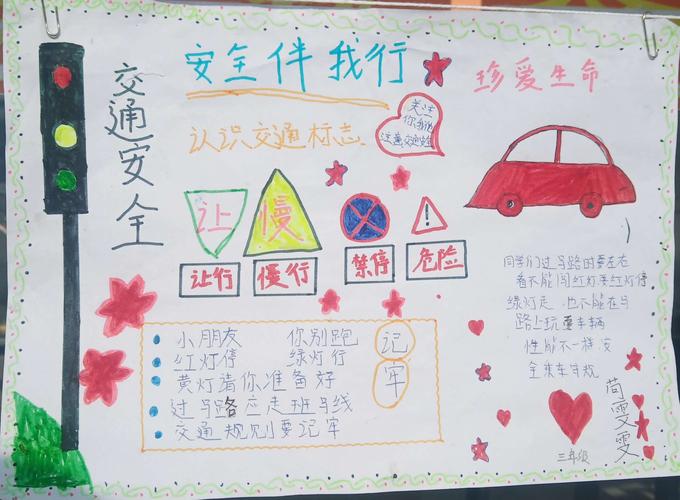 交通安全
安全伴我行
珍爱生命
认识交通标志
关注
你我他
注意交通安全
让
慢
让行
慢行
禁停
危险
!
小朋友 你别跑
红灯停 绿灯行
黄灯请你准备好
过马路应走班马线
交通规则要记牢
记牢
同学们过马路时要左右
看不能闯红灯要红灯停
绿灯走 也不能在马
路上玩耍车辆
性能不一样安
全乘车
三年级